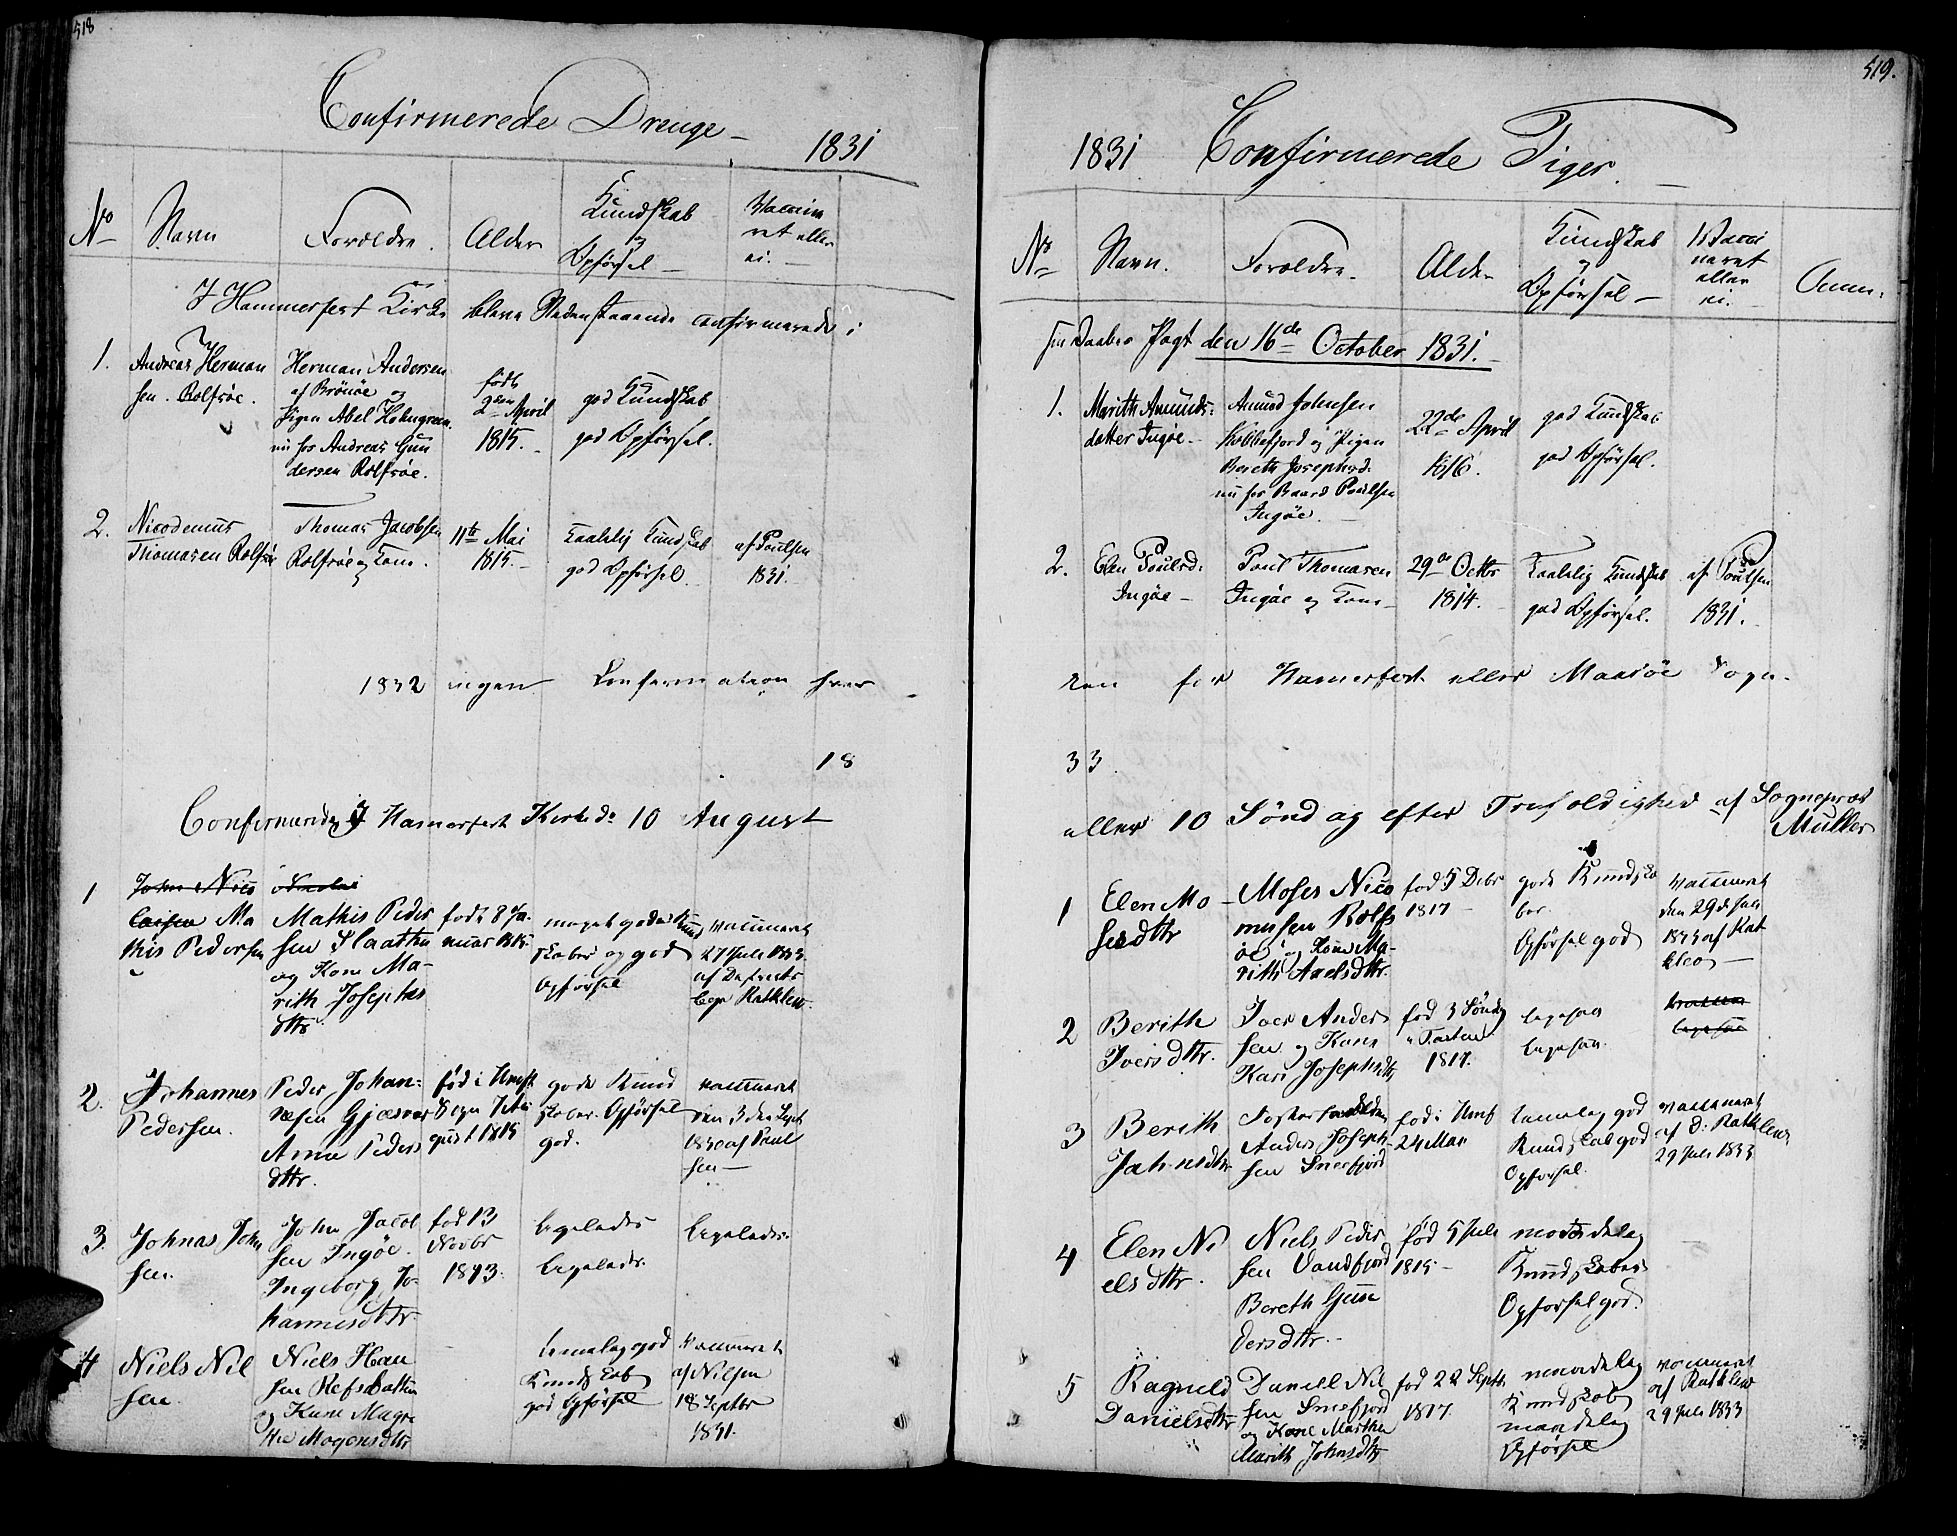 518
Confirmerede Drenge
1831
No
Navn
Forældre.
Alder
Kundskab
og
Opførsel
Vaccine
ret eller
ei.
I Hammerfest Kirke bleve Nedenstaaende confirmerede i
1.
Andreas Herman
sen. Rolfsøe.
Herman Andersen
af Brönöe og
Pigen Abel Holmgreen
nu hos Andreas Gun
dersen Rolfsøe.
födt
2den April
1815.
god Kundskab
god Opførsel.
2.
Nicodemus
Thomasen Rolfsøe
Thomas Jacobsen
Rolfsøe og Kone.
11te Mai
1815.
taalelig Kundskab
god Opførsel.
af Poulsen
1831.
1832 ingen Confirmation hver
18
Confirmerede I Hamerfest Kirke d: 10 August
1
Mathis Pedersen
Mathis Peder
sen Slaatten
og Kone Ma-
rith Josephs
dttr
født 8 Ja-
nuar 1815
meget gode Kund
skaber og god
Opførsel
vaccineret
27 Juli 1833
af Districts
læge Rathkleo
2.
Johannes
Pedersen.
Peder Johan-
nesen Gjæsvær
Anne Peders
dttr.
fød i Hmft
Sogn 7 Au
gust 1815
gode Kund
skaber. Opførsel
god.
vaccineret
den 3 den Sept
1830 af Paul
sen
3.
Johnas John
sen.
John Jacob
sen Ingöe.
Ingeborg Jo-
hannesdttr.
fød 13
Novbr
1813.
ligeledes
ligeledes.
ligeledes.
4
Niels Nil
sen.
Niels Han
sen Refsbotten
og Kone Magre
the Mogensdttr
temelig god
Kundskab
god Opførsel
Vaccineret
af Nilsen
18 Septbr
1831.
519.
1831
Confirmerede Piger.
No
Navn.
Forældre.
Alder
Kundskab
og
Opførsel
Vacci
neret
eller
ei.
Anm:
sin Daabes Pagt den 16de October 1831.
1.
Marith Amunds:
datter Ingøe.
Amund Johnsen
Kobbefjord og Pigen
Bereth Josephsd:
nu hos Baard Poulsen
Ingöe.
22de April
1816.
god Kundskab
god Opførsel.
2.
Elen Poulsd:
Ingöe
Poul Thomasen
Ingöe og Kone
29de Octbr
1814.
Taalelig Kundskab
god Opførsel.
af Poulsen
1831.
ken for Hamerfest eller Maasöe Sogn.
33.
eller 10 Sønd ag efter Trefoldighed af Sogneprest
Müller
1
Elen Mo-
sesdttr
Moses Nico
musen Rolfs
öe og Kone Ma-
rith Axelsdttr.
fød 5 Debr
1817
gode Kundska
ber.
Opførsel god
vaccineret
den 29 d Juli
1833 af Rat
kleo
2
Berith
Iversdttr.
Iver Ander
sen og Kone
Kari Josephsdtr
fød 3 Söndag
i Fasten
1817.
ligesaa
ligesaa.
3
Berith
Johnsdttr
Fosterforældre
Anders Joseph
sen Snefjord
fød i Hmf
24 Mai
temelig god
Kundskab god
Opførsel.
vaccineret
af D: Rathkleo
29 Juli 1833
4
Elen Ni
elsdttr.
Niels Peder
sen Vandfjord
Bereth Gun
dersdttr.
fød 5 Juli
1815
maadelig
Kundskaber
Opførsel god.
5
Ragnild
Danielsdttr
Daniell Nil
sen Snefjord
og Kone Marthe
Marith Johnsdttr
fød 22 Septbr
1817.
maadelig
Kundskab
maadelig
Opførsel
vaccineret
af Rathkleo
29 Juli 1833